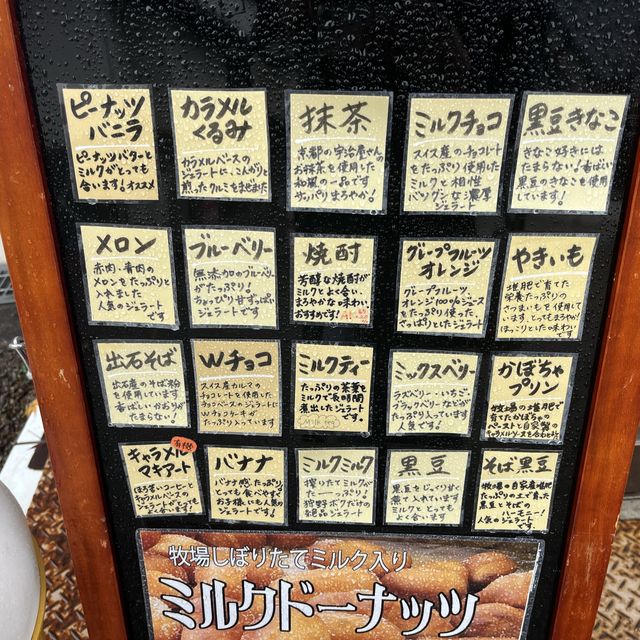 ピーナッツ
バニラ
ピーナッツバターと
ミルクがとっても
合います!オススメ
カラメル
くるみ
カラメルベースの
ジェラートに、こんがりと
煎ったクルミをまぜました
抹茶
京都の宇治屋さんの
お抹茶を使用した
和風の一品です
サッパリまろやか!
ミルクチョコ
スイス産のチョコレート
をたっぷり使用した
ミルクと相性
バツグンな濃厚
ジェラート
黒豆きなこ
きなこ好きには
たまらない!香ばしい
黒豆のきなこを使用
しています!
メロン
赤肉・青肉の
メロンをたっぷりと
入れました
人気のジェラート
です
ブルーベリー
無添加のブルーベリー
がたっぷり!
ちょっぴり甘ずっぱい
ジェラートです
焼酎
芳醇な焼酎が
ミルクとよく合い
まろやかな味わい。
おすすめです!
グレープフルーツ
オレンジ
グレープフルーツ、
オレンジ100%ジュース
をたっぷり使った
さっぱりとしたジェラート
やきいも
堆肥で育てた
栄養たっぷりの
さつまいもを使用して
います。とってもまろやか!
ほっこりとした味わい
です
出石そば
出石産のそば粉
を使用しています!
香ばしいかおりが
たまらない!
Wチョコ
スイス産カルマの
チョコレートを使用した
チョコベースのジェラートに
Wチョコクッキーが
たっぷり入っています
ミルクティー
たっぷりの茶葉を
ミルクで長時間
煮出したジェラート
です。
Milk tea
ミックスベリー
ラズベリー・いちご
ブラックベリーなどが
たっぷり入っています
人気です!
かぼちゃ
プリン
牧場の堆肥で
育てたかぼちゃの
ペーストと自家製の
カラメルソースを合わせた
キャラメル
マキアート
ほろ苦いコーヒーと
キャラメルベースの
ジェラートです
バナナ
バナナ感たっぷりで
とっても食べやすく
お子様にも人気の
ジェラートです!
ミルクミルク
搾りたてミルクが
たーっぷり!
狩野ボクだけの
絶品ジェラート
黒豆
黒豆をじっくり甘く
煮て入れています
ミルクと、とっても
よく合います
そば黒豆
牧場の自家産堆肥
たっぷりの土で育った
黒豆とそばの
ハーモニー!
人気のジェラート
です
牧場しぼりたてミルク入り
ミルクドーナッツ